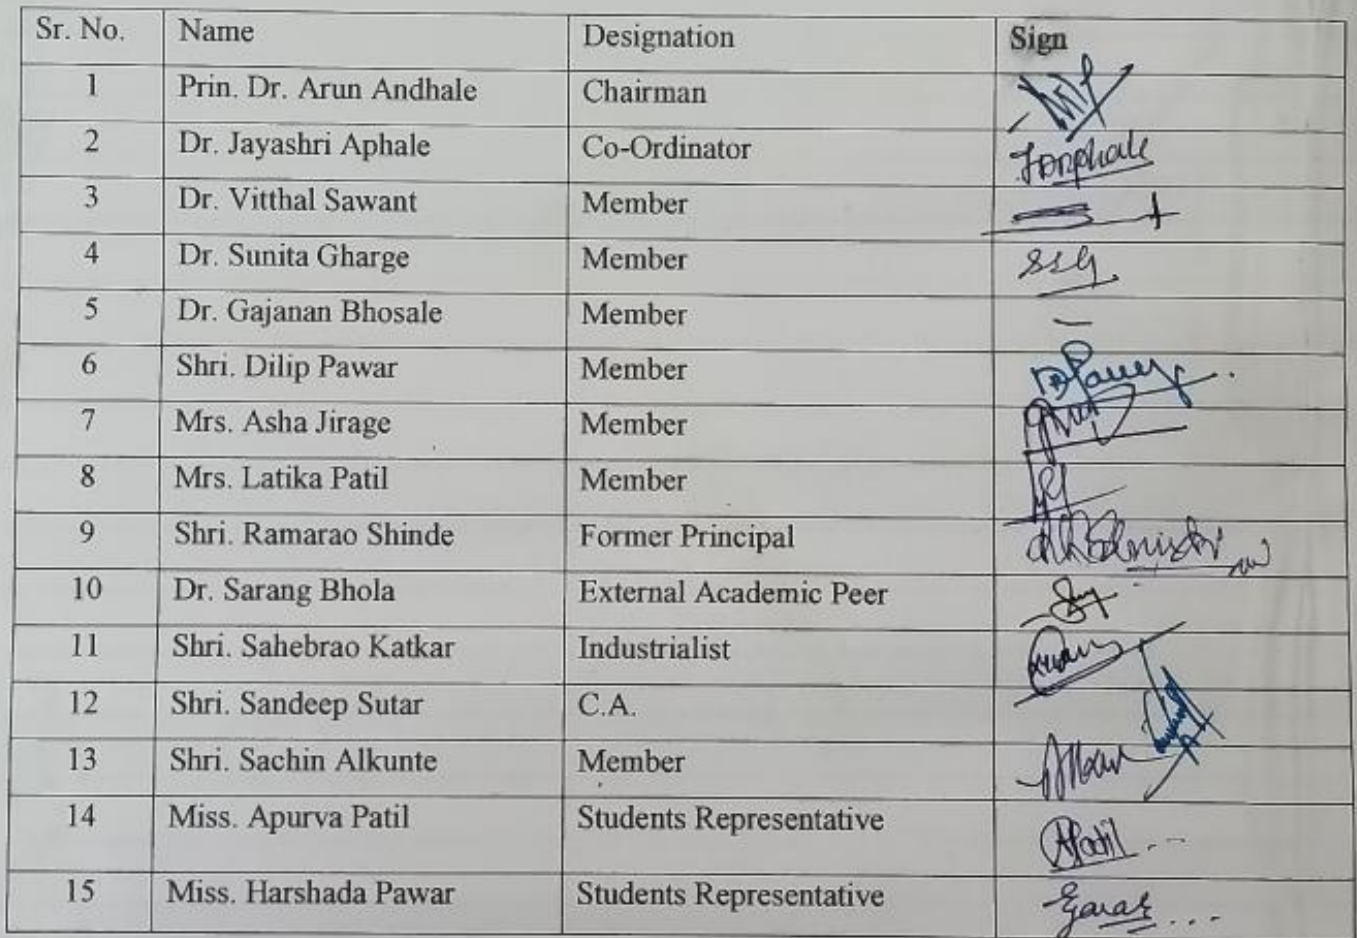 Sr. No. Name Designation Sign
1 Prin. Dr. Arun Andhale Chairman
2 Dr. Jayashri Aphale Co-Ordinator
3 Dr. Vitthal Sawant Member
4 Dr. Sunita Gharge Member
5 Dr. Gajanan Bhosale Member —
6 Shri. Dilip Pawar Member
7 Mrs. Asha Jirage Member
8 Mrs. Latika Patil Member
9 Shri. Ramarao Shinde Former Principal
10 Dr. Sarang Bhola External Academic Peer
11 Shri. Sahebrao Katkar Industrialist
12 Shri. Sandeep Sutar C.A.
13 Shri. Sachin Alkunte Member
14 Miss. Apurva Patil Students Representative APatil
15 Miss. Harshada Pawar Students Representative